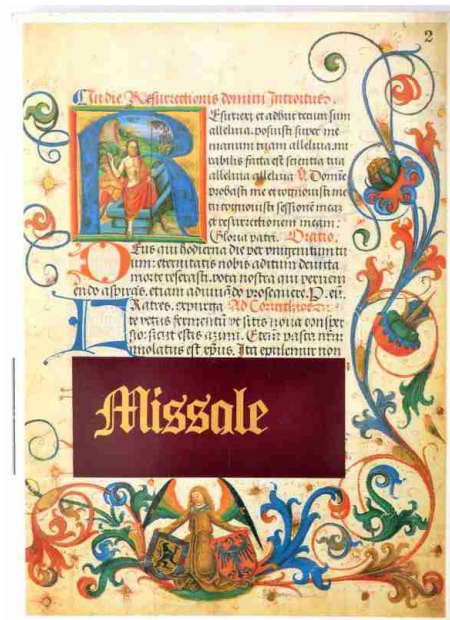 2
In die Resurrectionis domini Introitus.
Resurrexi et adhuc tecum sum
alleluia. posuisti super me
manum tuam alleluia. mi
rabilis facta est scientia tua
alleluia alleluia V. Domine
probasti me et cognouisti me
tu cognouisti sessionē meaz
et resurrectionem meam:
Gloria patri. Oratio.
Deus qui hodierna die per vnigenitum tu
um: eternitatis nobis aditum deuicta
morte reserasti. vota nostra que preueni
endo aspiras. etiam adiuuādo prosequere. P. eū.
Fratres. expurga Ad Corinthios
te vetus fermentū vt sitis noua consper
sio: sicut estis azimi. Etenī pasca nrm
immolatus est xp̄us. Itaq epulemur non
Missale